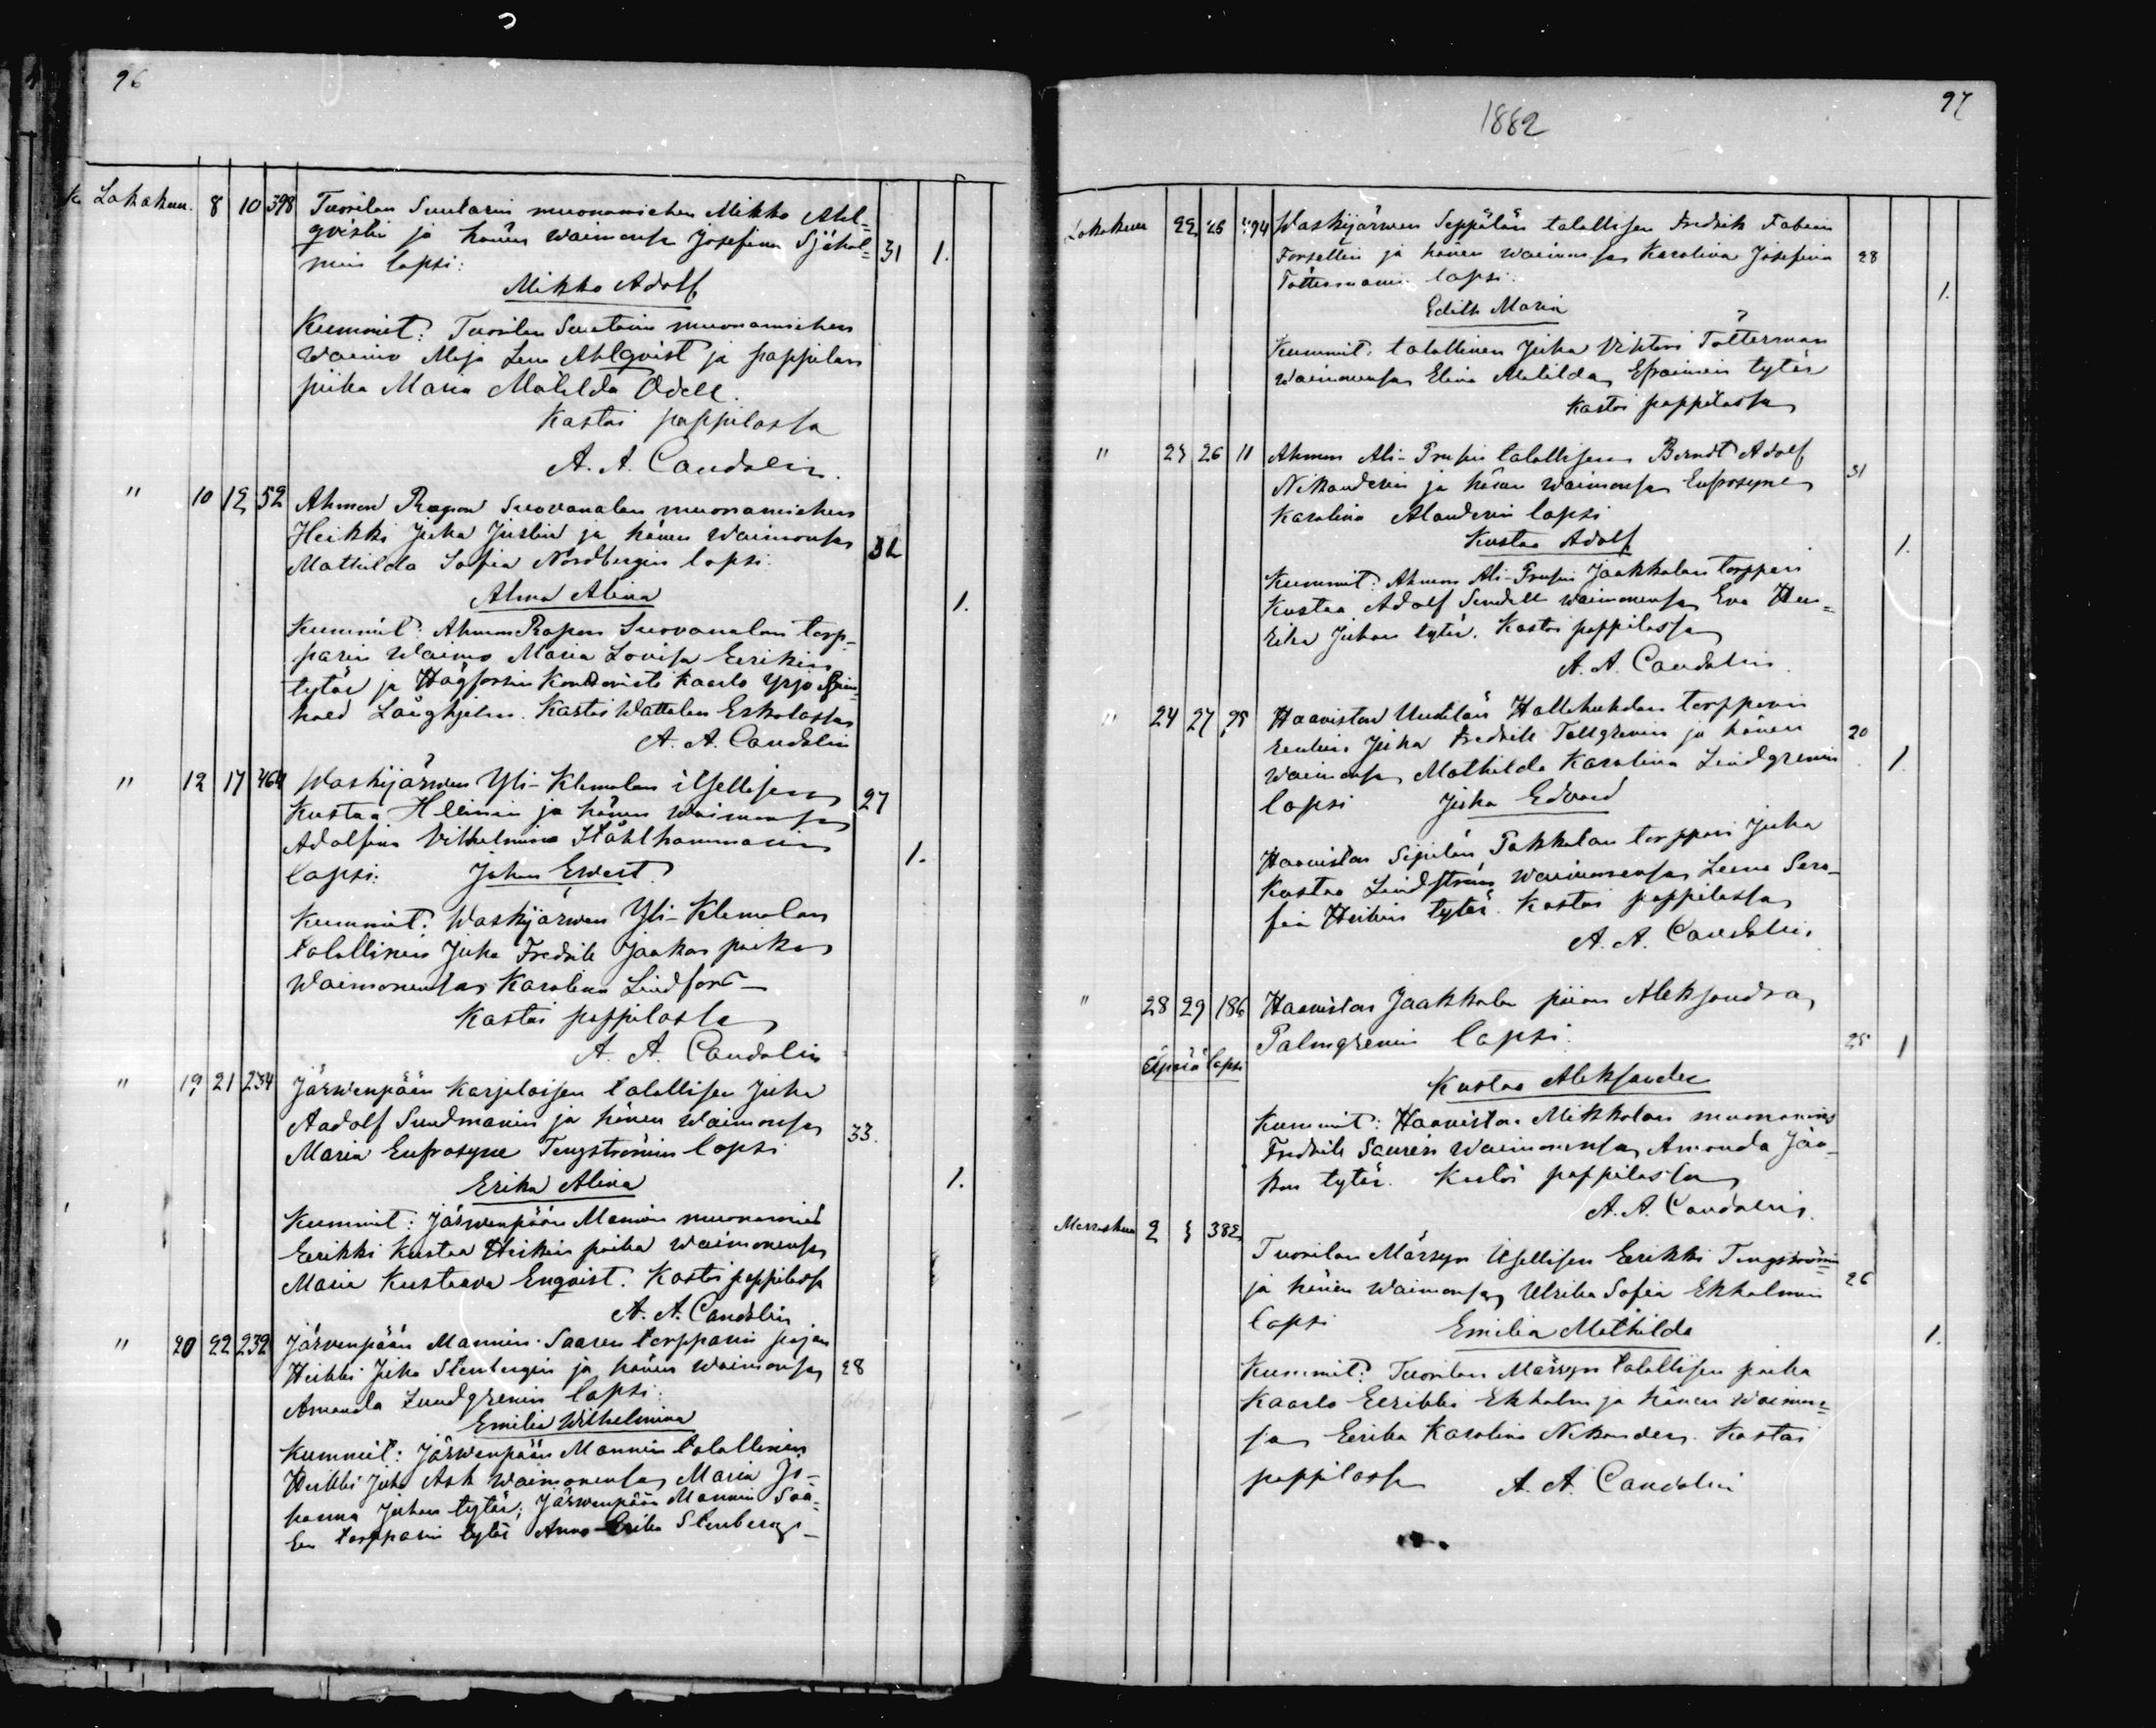 96
Lokakuu. 8 10 398 Tuorilan Suutarin muonamiehen Mikko Ahl=
qvistin ja hänen waimonsa Josefina Sjöhol= 31 1.
min lapsi:
Mikko Adolf
Kummit: Tuorilan Suutarin muonamiehen
Waimo Maja Lena Ahlqvist ja pappilan
piika Maria Matilda Odell.
Kastoi pappilassa
A. A. Candolin.
" 10 12 52 Ahmon Rapon Suovanalan muonamiehen
Heikki Juha Juslin ja hänen Waimonsa
Mathilda Sofia Nordbergin lapsi. 32
Alma Alina
1.
Kummit: Ahmon Rapon Suovanalan torp-
parin Waimo Maria Lovisa Eerikin
tytär ja Högforsin Konduristi Kaarlo Yrjö
Långhjelm. Kastoi Wattolan Erkolassa
A. A. Candolin
" 12 17 464 Waskijärwen Yli-Klemolan itsellisen
Kustaa Hellinin ja hänen Waimonsa 27
Adolfina Vilhelmina Stålhammarin
lapsi: Johan Ewert 1.
Kummit: Waskijärwen Yli-Klemolan
talollinen Juha Fredrik Jaakon poika
Waimonensa Karolina Lindfors
Kastoi pappilassa
A. A. Candolin
" 19 21 234 Järwenpään Karjalaisen talollisen Juha
Aadolf Sundmanin ja hänen Waimonsa
Maria Eufrosyne Tengströmin lapsi 33.
Erika Alina 1.
Kummit: Järwenpään Mannin muonamies
Eerikki Kustaa Heikin poika Waimonensa
Maria Kustaava Enqvist. Kastoi pappilassa
A. A. Candolin
" 20 22 232 Järvenpään Mannin Saaren torpparin pojan
Heikki Juha Stenbergin ja hänen Waimonsa 28
Amanda Lundgrenin lapsi:
Emilia Wilhelmina
Kummit: Järwenpään Mannin talollinen
Heikki Juha Ask Waimonensa Maria Jo-
hanna Juhan tytär; Järwenpään Mannin Saa-
ren torpparin tytär Anna Erika Stenberg
97
1882
Lokakuu 22 26 494 Waskijärwen Seppälän talollisen Fredrik Fabian
Forsellin ja hänen waimonsa Karolina Josefina 28
Töttermanin lapsi. 1.
Edith Maria
Kummit: talollinen Juha Viktori Tötterman
Waimonensa Elina Matilda Efraimin tytär
Kastoi pappilassa
" 23 26 11 Ahmon Ali-Prusin talollisen Berndt Adolf
Nikanderin ja hänen Waimonsa Eufrosyne 31
Karolina Alanderin lapsi
Kustaa Adolf 1.
Kummit: Ahmon Ali-Prusin Jaakkolan torppari
Kustaa Adolf Sendell waimonensa Eva Hen=
rika Juhan tytär. Kastoi pappilassa
A. A. Candolin.
" 24 27 95 Haaviston Uudelan Hallehuhdan torpparin
Juha Fredrik Tallgrenin ja hänen 20
waimonsa Mathilda Karolina Lindgrenin 1.
lapsi Juha Edvard
Haaviston Sipilän Pakkalan torppari Juha
Kustaa Lindström Waimonensa Leena Sera-
fia Heikin tytär. Kastoi pappilassa
A. A. Candolin.
" 28 29 186 Haaviston Jaakkolan piian Aleksandra
Palmgrenin lapsi. 25 1
Äpärä lapsi
Kustaa Aleksander
Kummit: Haaviston Mikkolan muonamies
Fredrik Sauren Waimonensa Amanda Jaa-
kon tytär. Kastoi pappilassa
A. A. Candolin.
Marraskuu 2 5 382 Tuorilan Märsyn Itsellisen Eerikki Tengströmin
ja hänen Waimonsa Ulrika Sofia Ekholmin 26
lapsi Emilia Mathilda 1.
Kummit: Tuorilan Märsyn talollisen poika
Kaarlo Eerikki Ekholm ja hänen Waimon=
sa Eerika Karolina Nikander. Kastoi
pappilassa A. A. Candolin